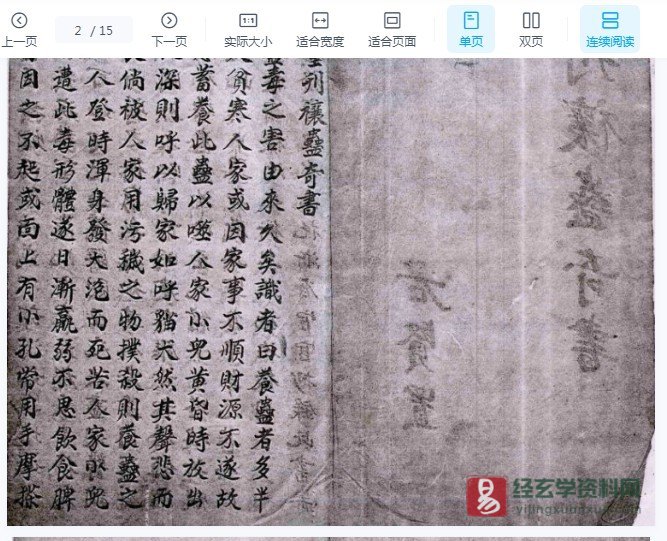 上一页
2 / 15
下一页
1:1
实际大小
适合宽度
适合页面
单页
双页
连续阅读
刊禳蠱奇書
刊禳蠱奇書
毒之害由來久矣識者曰養蠱者多半
貧寒人家或因家事不順財源不遂故
蓄養此蠱以噬人家小兒黃昏時放出
深則呼以歸家如呼貓犬然其聲悲而
倘被人家用污穢之物撲殺則養蠱之
人登時渾身發大泡而死若人家的兒
遭此毒形體遂日漸羸弱不思飲食脾
因之不起或面上有小孔常用手摩搽
易
经玄学资料网